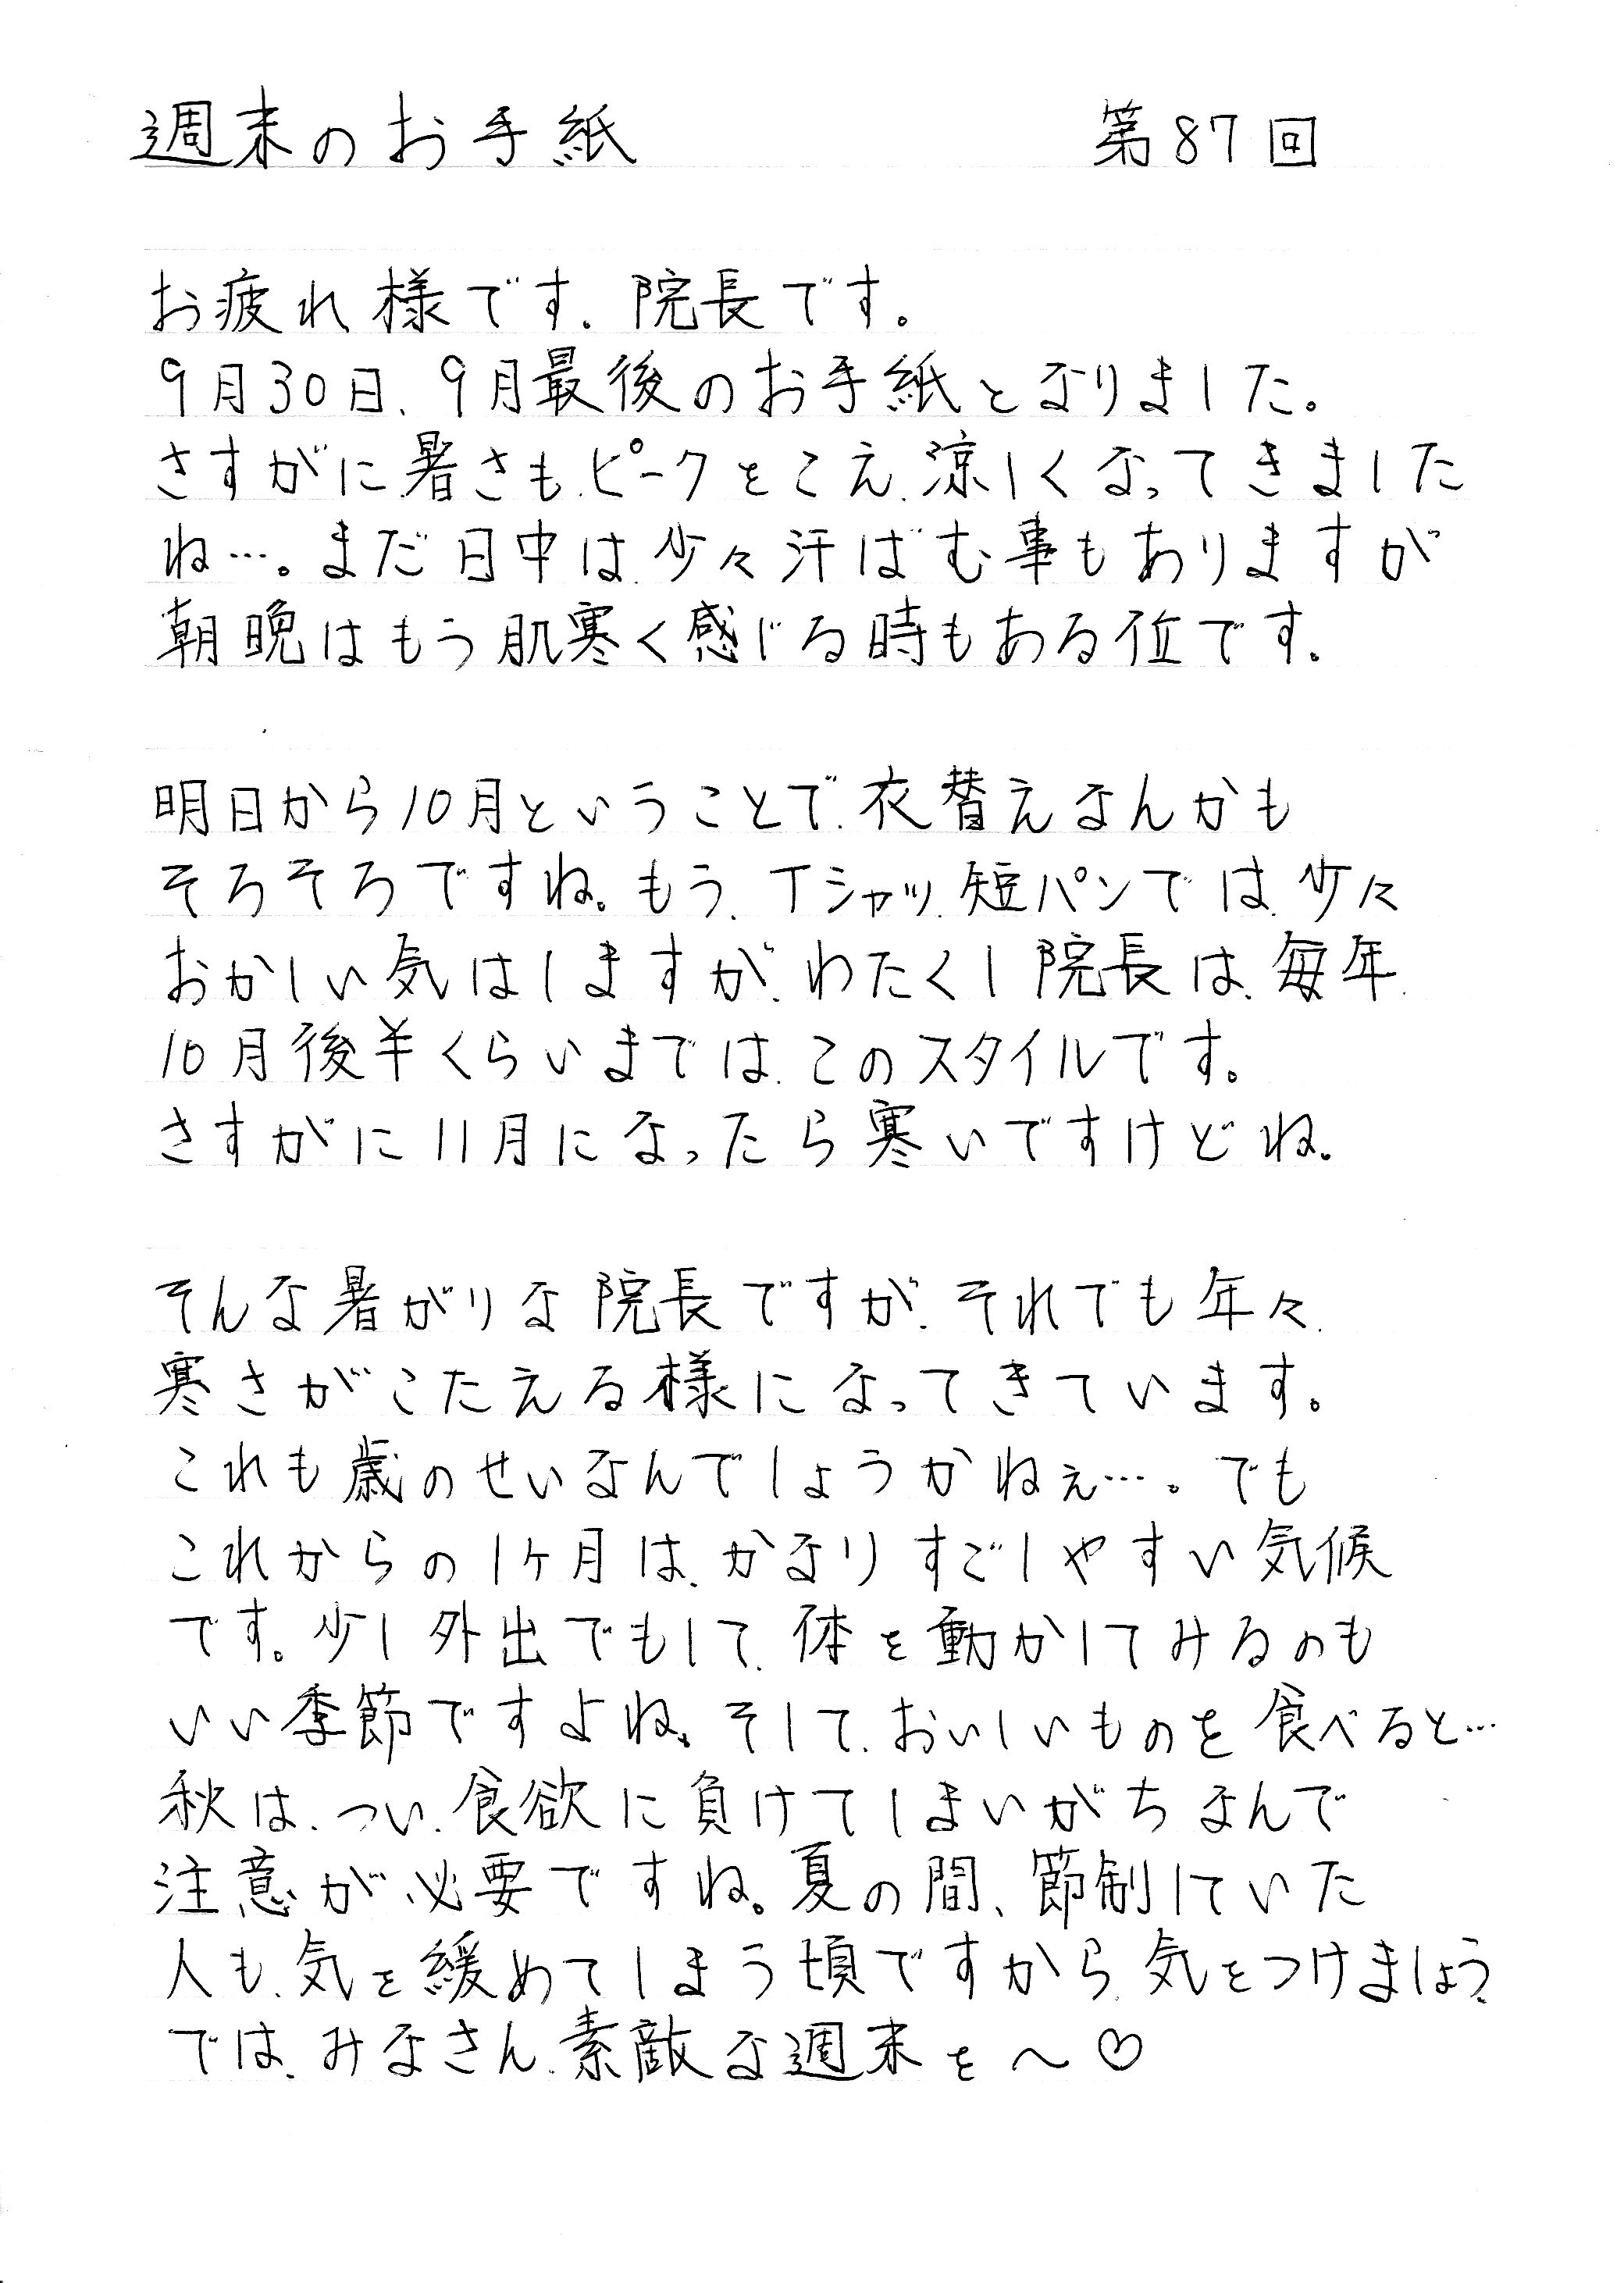 週末のお手紙 第87回
お疲れ様です、院長です。
9月30日、9月最後のお手紙となりました。
さすがに、暑さも、ピークをこえ、涼しくなってきました
ね…。まだ日中は、少々汗ばむ事もありますが
朝晩はもう肌寒く感じる時もある位です。
明日から10月ということで、衣替えなんかも
そろそろですね。もう、Tシャツ、短パンでは、少々
おかしい気はしますが、わたくし院長は、毎年、
10月後半くらいまでは、このスタイルです。
さすがに11月になったら寒いですけどね。
そんな暑がりな院長ですが、それでも年々、
寒さがこたえる様になってきています。
これも歳のせいなんでしょうかねぇ…。でも
これからの1ヶ月は、かなりすごしやすい気候
です。少し外出でもして、体を動かしてみるのも
いい季節ですよね。そして、おいしいものを食べると…
秋は、つい、食欲に負けてしまいがちなんで
注意が必要ですね。夏の間、節制していた
人も、気を緩めてしまう頃ですから、気をつけましょう。
では、みなさん、素敵な週末を〜♡